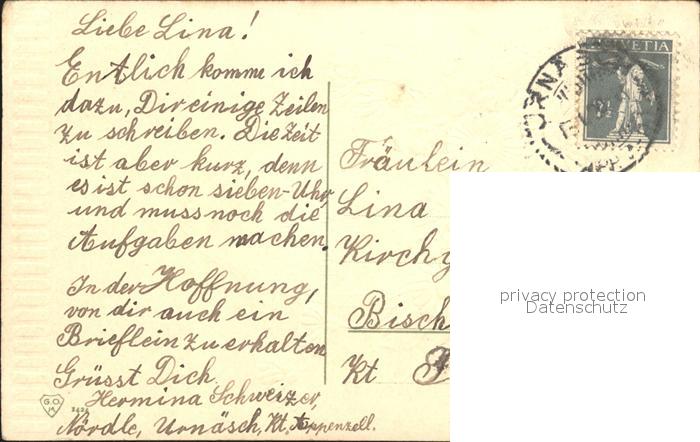 Liebe Lina!
Entlich komme ich
dazu, Dir einige Zeilen
zu schreiben. Die Zeit
ist aber kurz, denn
es ist schon sieben-Uhr,
und muss noch die
Aufgaben machen.
In der Hoffnung,
von dir auch ein
Brieflein zu erhalten
Grüsst Dich.
Hermina Schweizer,
Nördle, Urnäsch, Kt. Appenzell.
G.O.M.
HELVETIA
7½
URNÄ
Fräulein
Lina
Kirchg
Bisch
Kt
privacy protection
Datenschutz